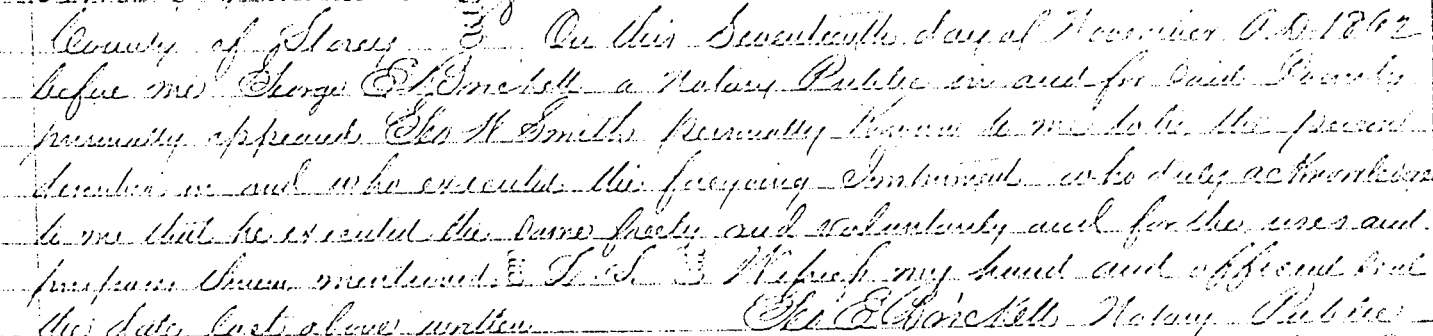 County of Storey On this Seventeenth day of November A.D. 1862
before me George E. Brickett a Notary Public in and for said County
personally appeared Geo W Smith personally known to me to be the person
described in and who executed the foregoing Instrument who duly acknowledged
to me that he executed the same freely and voluntarily and for the uses and
purposes therein mentioned L. S. Witness my hand and official seal
the date last above written Geo E Brickett Notary Public